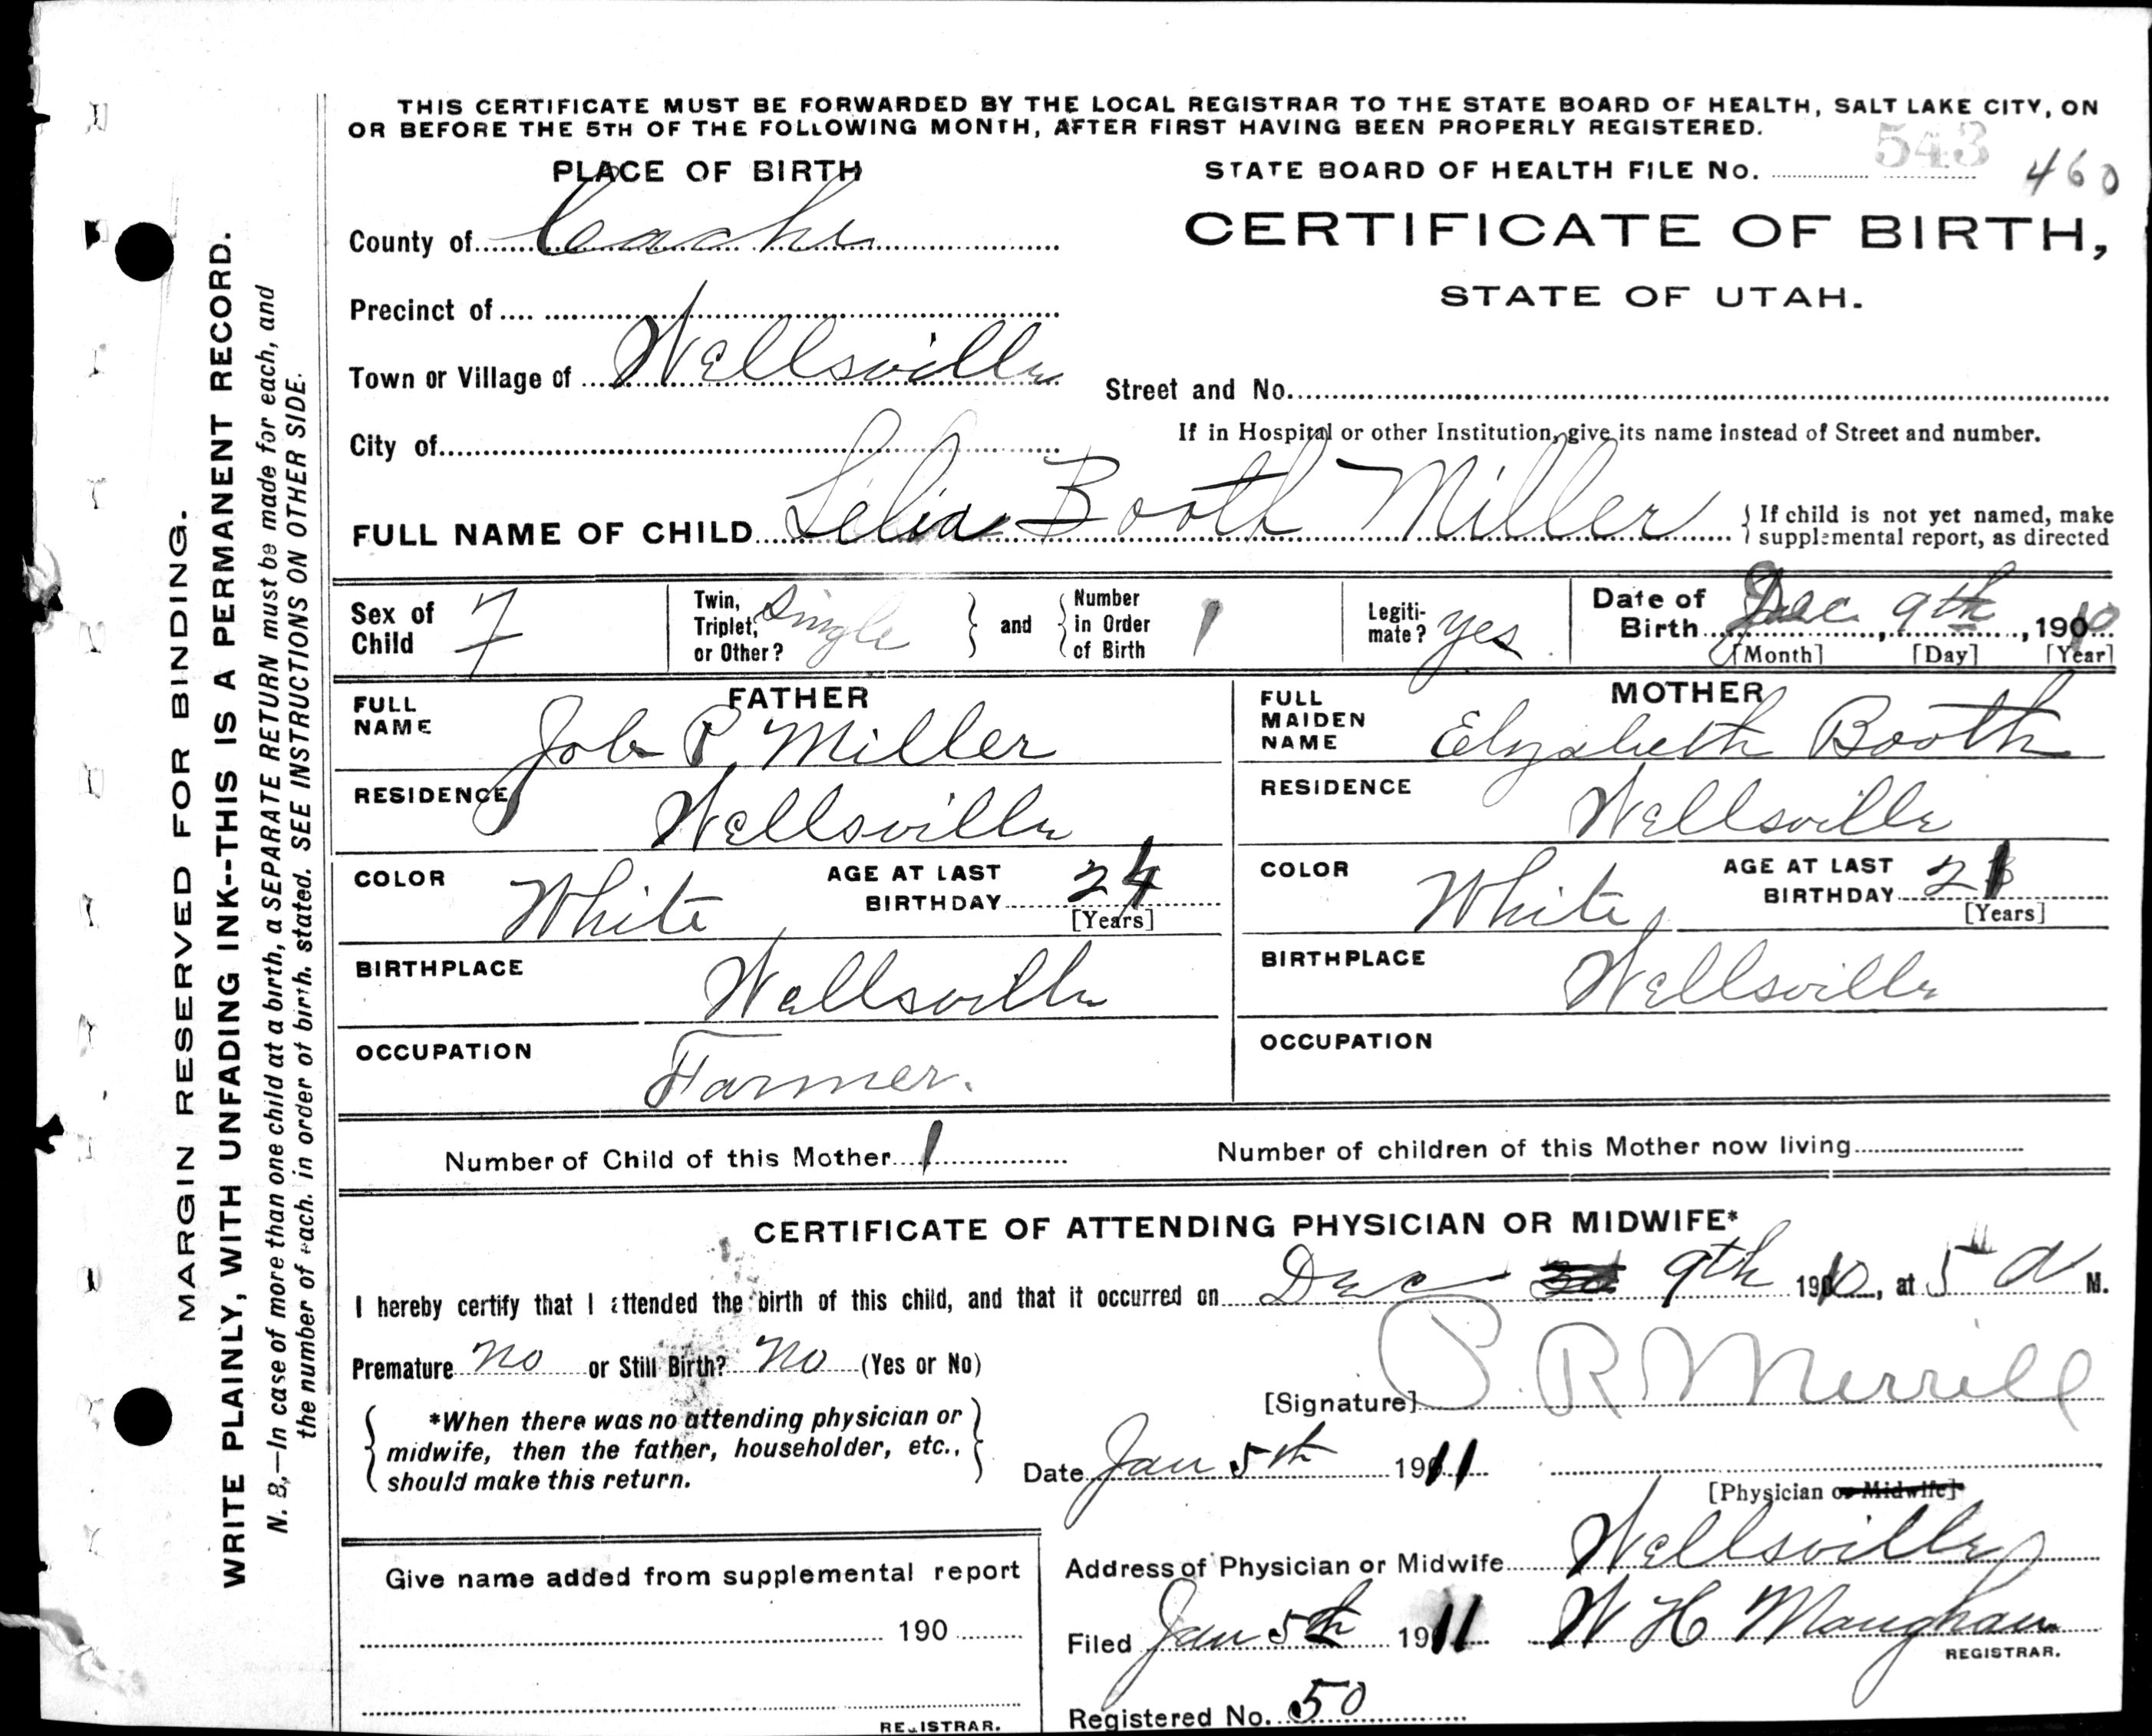 THIS CERTIFICATE MUST BE FORWARDED BY THE LOCAL REGISTRAR TO THE STATE BOARD OF HEALTH, SALT LAKE CITY, ON
OR BEFORE THE 5TH OF THE FOLLOWING MONTH, AFTER FIRST HAVING BEEN PROPERLY REGISTERED.
PLACE OF BIRTH
STATE BOARD OF HEALTH FILE No. 543 460
County of Cache
CERTIFICATE OF BIRTH,
STATE OF UTAH.
Precinct of
Town or Village of Wellsville
Street and No.
City of
If in Hospital or other Institution, give its name instead of Street and number.
FULL NAME OF CHILD Lelia Booth Miller
If child is not yet named, make
supplemental report, as directed
Sex of Child F
Twin, Triplet, or Other? Single
and
Number in Order of Birth 1
Legiti-mate? yes
Date of Birth Dec 9th, 1910
[Month] [Day] [Year]
FATHER
FULL NAME Job P Miller
RESIDENCE Wellsville
COLOR White
AGE AT LAST BIRTHDAY 24
[Years]
BIRTHPLACE Wellsville
OCCUPATION Farmer.
MOTHER
FULL MAIDEN NAME Elyzabeth Booth
RESIDENCE Wellsville
COLOR White
AGE AT LAST BIRTHDAY 21
[Years]
BIRTHPLACE Wellsville
OCCUPATION
Number of Child of this Mother 1
Number of children of this Mother now living
CERTIFICATE OF ATTENDING PHYSICIAN OR MIDWIFE*
I hereby certify that I attended the birth of this child, and that it occurred on Dec 9th 1910, at 5 A M.
Premature No or Still Birth? No (Yes or No)
[Signature] P. R Merrill
*When there was no attending physician or
midwife, then the father, householder, etc.,
should make this return.
Date Jan 5th 1911
[Physician or Midwife]
Address of Physician or Midwife Wellsville
Give name added from supplemental report
190
REGISTRAR.
Filed Jan 5th 1911 W H Maughan
REGISTRAR.
Registered No. 50
MARGIN RESERVED FOR BINDING.
WRITE PLAINLY, WITH UNFADING INK--THIS IS A PERMANENT RECORD.
N. B,—In case of more than one child at a birth, a SEPARATE RETURN must be made for each, and
the number of each. in order of birth. stated. SEE INSTRUCTIONS ON OTHER SIDE.